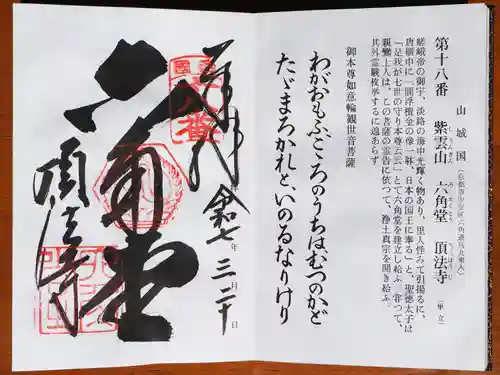 第十八番 紫雲山 六角堂 頂法寺 (単立)
しうんざん ろっかくどう ちょうほうじ
山城国 (京都市中京区六角通烏丸東入)
嵯峨帝の御宇、淡路の海中光輝く物あり、里人怪みて引揚るに、
唐櫃中に一顆浮檀金の像一躰、日本の国王に奉ると、聖徳太子は
「是我が七世の守り本尊云云」とて六角堂を建立し給ふ 昔つて、
親鸞上人は、この菩薩の霊告に依つて、浄土真宗を開き給ふ
其外霊験枚挙するに遑あらず
御本尊如意輪観世音菩薩
わがおもふこころのうちはむつのかど
たゞまろかれといのるなりけり
奉拝
令和七年三月二十日
六角堂
頂法寺